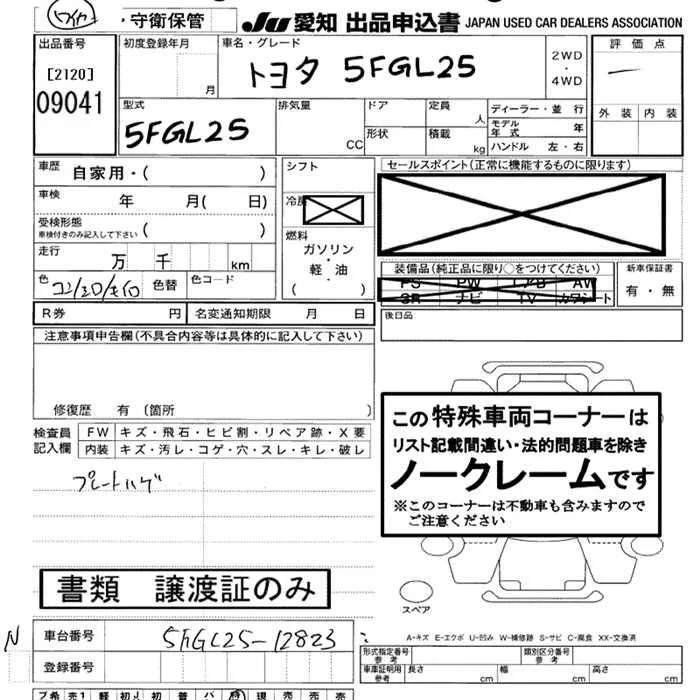 ・守衛保管 JU 愛知 出品申込書 JAPAN USED CAR DEALERS ASSOCIATION
出品番号 初度登録年月 車名・グレード 2WD・4WD 評価点
[2120]
09041 月 トヨタ 5FGL25
外装 内装
型式 排気量 ドア 定員 人 ディーラー・並行
5FGL25 CC 形状 積載 kg モデル年式 年
ハンドル 左・右
車歴 自家用・( ) シフト セールスポイント(正常に機能するものに限ります)
車検 年 月( 日) 冷房
受検形態 ( )
車検付きのみ記入して下さい
燃料
ガソリン・軽・油
( )
走行 万 千 km
装備品(純正品に限り○をつけてください) 新車保証書
PS PW エアB AW 有・無
SR ナビ TV カワシート
色 色替 色コード
R券 円 名変通知期限 月 日 後日品
注意事項申告欄(不具合内容等は具体的に記入して下さい)
修復歴 有(箇所 )
この特殊車両コーナーは
リスト記載間違い・法的問題車を除き
ノークレームです
※このコーナーは不動車も含みますので
ご注意ください
検査員記入欄 FW キズ・飛石・ヒビ割・リペア跡・X要
内装 キズ・汚レ・コゲ・穴・スレ・キレ・破レ
プレートハゲ
書類 譲渡証のみ
スペア
N 車台番号 5FGL25-12823
A-キズ E-エクボ U-凹み W-補修跡 S-サビ C-腐食 XX-交換済
登録番号
形式指定番号 参考 類別区分番号 参考
車庫証明用 参考 長さ cm 幅 cm 高さ cm